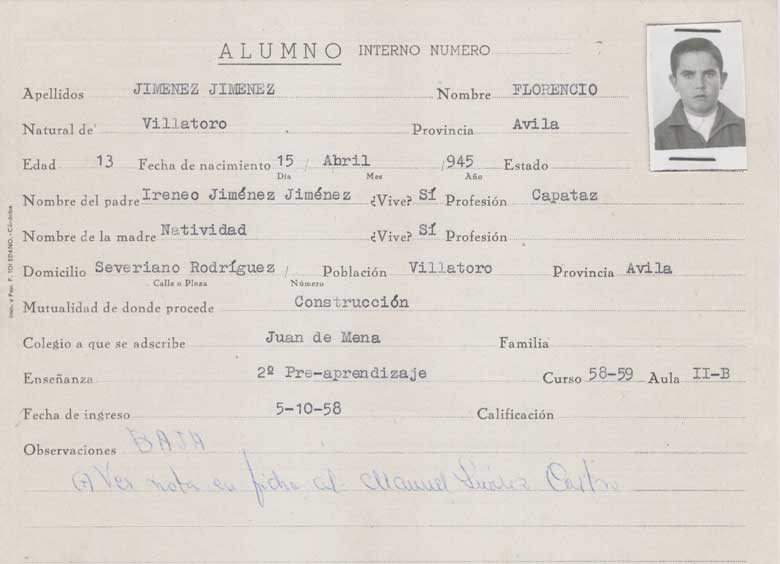 ALUMNO INTERNO NUMERO
Apellidos JIMENEZ JIMENEZ Nombre FLORENCIO
Natural de Villatoro Provincia Avila
Edad 13 Fecha de nacimiento 15 / Abril /945 Estado
Día Mes Año
Nombre del padre Ireneo Jiménez Jiménez ¿Vive? SÍ Profesión Capataz
Nombre de la madre Natividad ¿Vive? SÍ Profesión
Domicilio Severiano Rodríguez / Población Villatoro Provincia Avila
Calle o Plaza Número
Mutualidad de donde procede Construcción
Colegio a que se adscribe Juan de Mena Familia
Enseñanza 2º Pre-aprendizaje Curso 58-59 Aula II-B
Fecha de ingreso 5-10-58 Calificación
Observaciones BAJA
Ver nota en ficha al. Manuel Suárez Castro
Imp. y Pap. F. TOLEDANO.-Córdoba